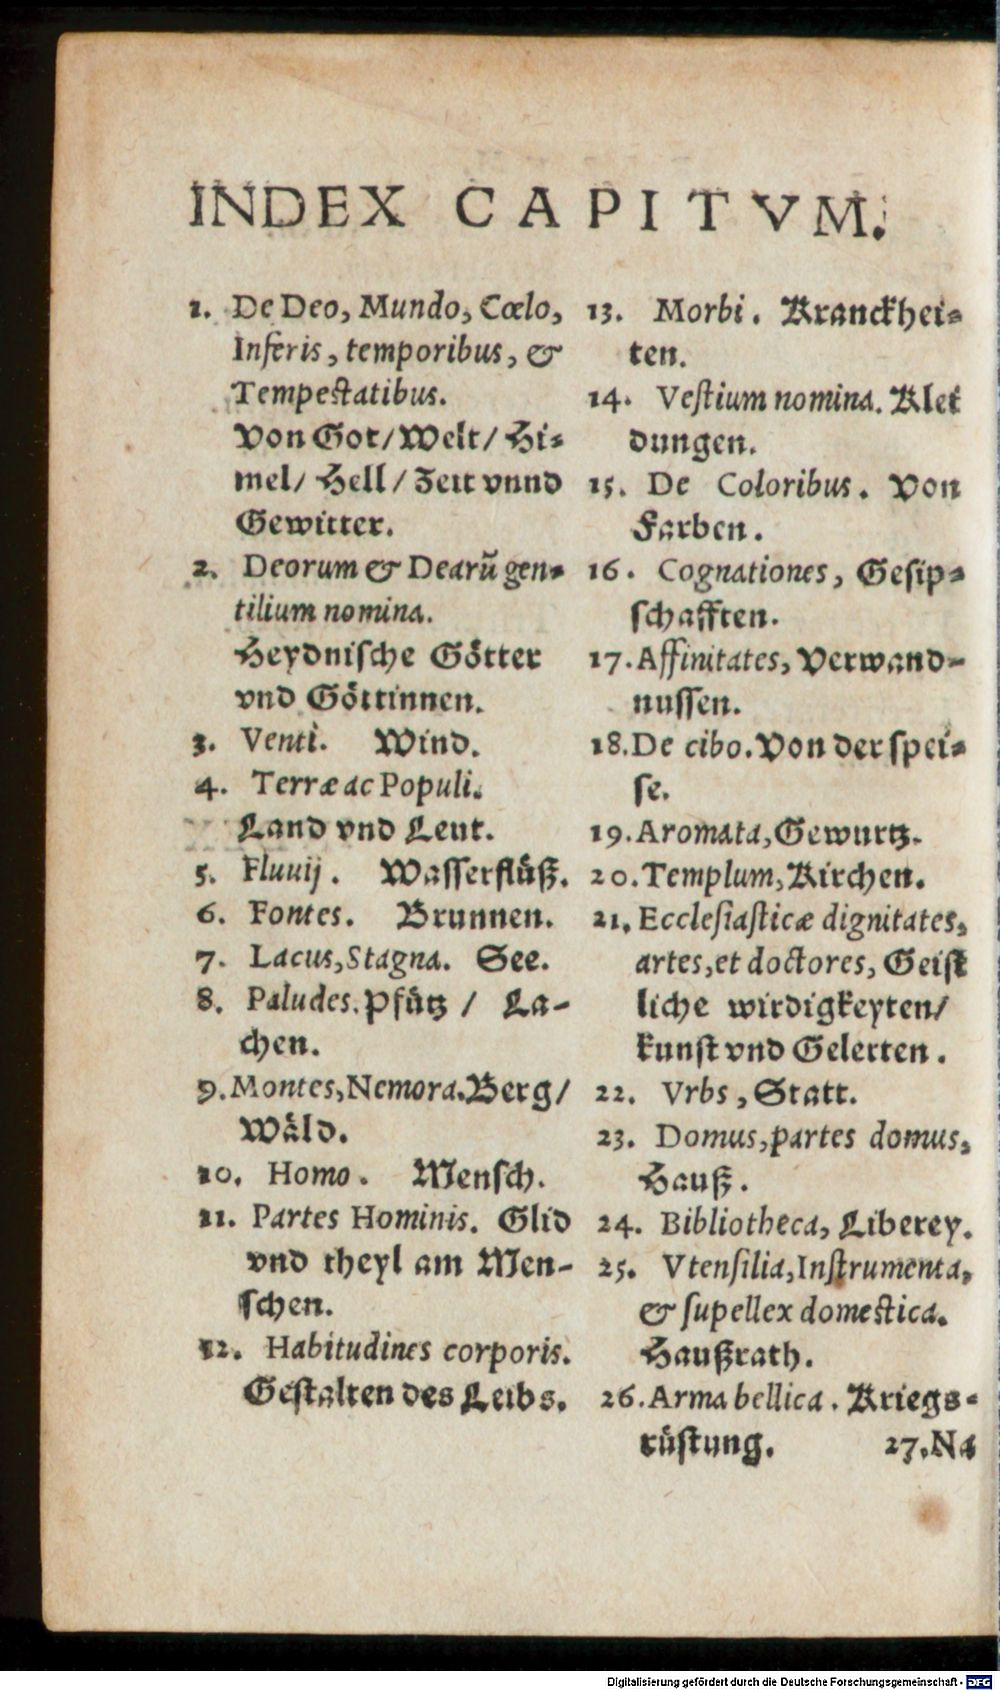 INDEX CAPITVM.
1. De Deo, Mundo, Cœlo,
Inferis, temporibus, &
Tempestatibus.
Von Got/Welt/Hi-
mel/Hell/Zeit vnnd
Gewitter.
2. Deorum & Dearũ gen-
tilium nomina.
Heydnische Götter
vnd Göttinnen.
3. Venti. Wind.
4. Terræ ac Populi.
Land vnd Leut.
5. Fluuij. Wasserflüß.
6. Fontes. Brunnen.
7. Lacus, Stagna. See.
8. Paludes. Pfütz / La-
chen.
9. Montes, Nemora. Berg/
Wäld.
10. Homo. Mensch.
11. Partes Hominis. Glid
vnd theyl am Men-
schen.
12. Habitudines corporis.
Gestalten des Leibs.
13. Morbi. Kranckhei-
ten.
14. Vestium nomina. Klei
dungen.
15. De Coloribus. Von
Farben.
16. Cognationes, Gesip-
schafften.
17. Affinitates, Verwand-
nussen.
18. De cibo. Von der spei-
se.
19. Aromata, Gewurtz.
20. Templum, Kirchen.
21. Ecclesiasticæ dignitates,
artes, et doctores, Geist
liche wirdigkeyten/
kunst vnd Gelerten.
22. Vrbs, Statt.
23. Domus, partes domus,
Hauß.
24. Bibliotheca, Liberey.
25. Vtensilia, Instrumenta,
& supellex domestica.
Haußrath.
26. Arma bellica. Kriegs-
rüstung. 27. Na
Digitalisierung gefördert durch die Deutsche Forschungsgemeinschaft - DFG